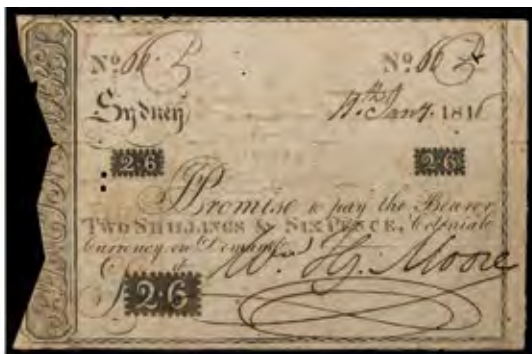 No. No.
Sydney Jany. 1816
2·6 2·6
I Promise to pay the Bearer
TWO SHILLINGS & SIXPENCE, Colonial
Currency on Demand
Wm. Hy. Moore
£ 2·6